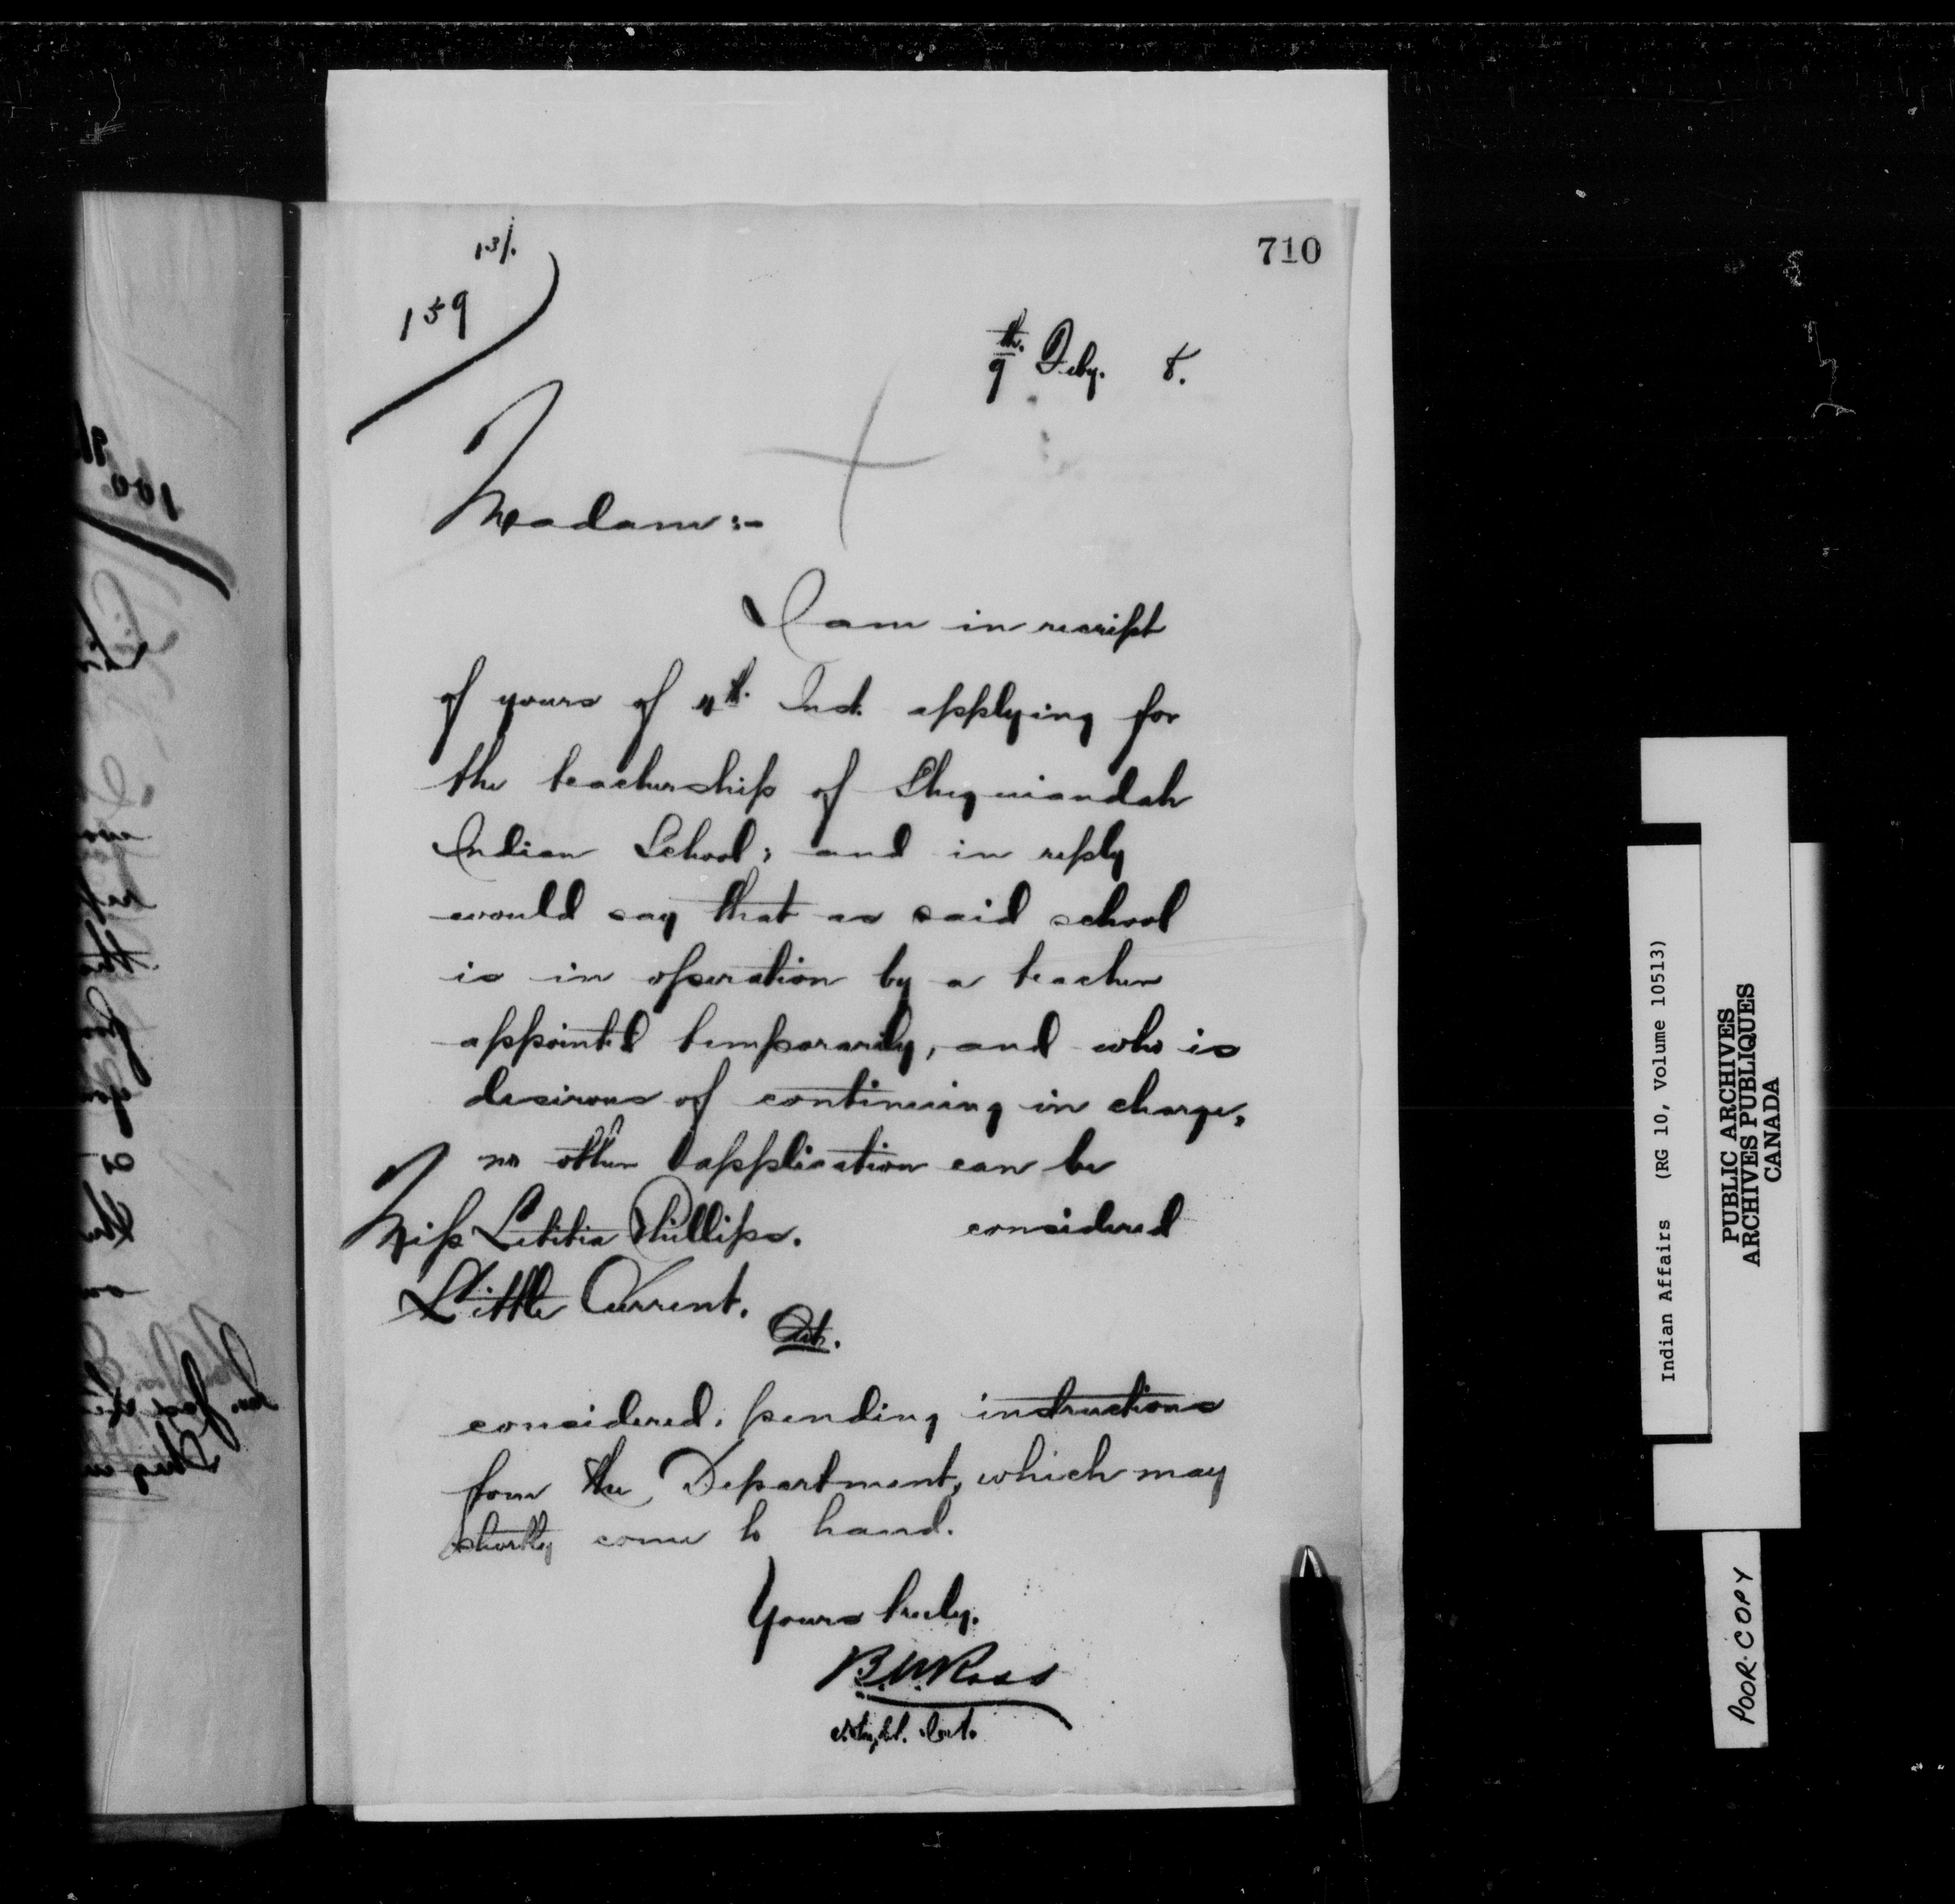 710
13/.
159
9th. Feby. 8.
Madam:-
I am in receipt
of yours of 4th. Inst. applying for
the teachership of Sheguiandah
Indian School; and in reply
would say that as said school
is in operation by a teacher
appointed temporarily, and who is
desirous of continuing in charge,
no other application can be
considered
Miss Letitia Phillips.
Little Current.
Ont.
considered, pending instructions
from the Department, which may
shortly come to hand.
Yours truly.
B.W.Ross
Indian Affairs (RG 10, Volume 10513)
PUBLIC ARCHIVES
ARCHIVES PUBLIQUES
CANADA
POOR COPY